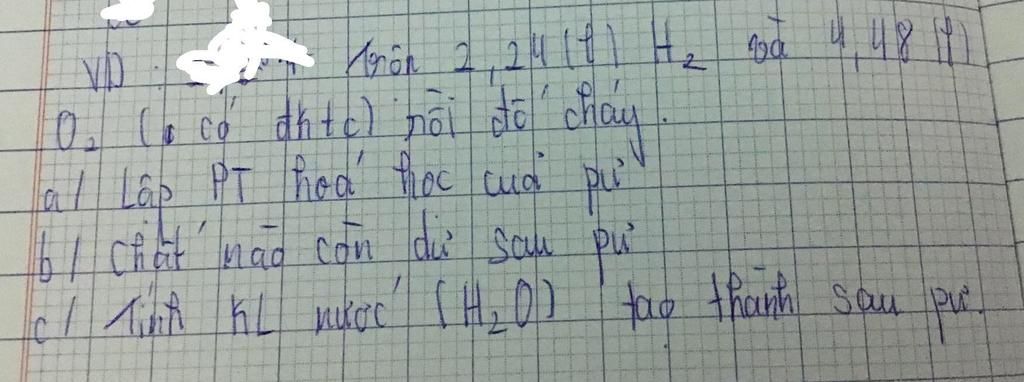 VD: Trộn 2,24 (l) H₂ và 4,48 (l)
O₂ (ở đktc) rồi đốt cháy.
a/ Lập PT hoá học của pư
b/ Chất nào còn dư sau pư
c/ Tính KL nước (H₂O) tạo thành sau pư.